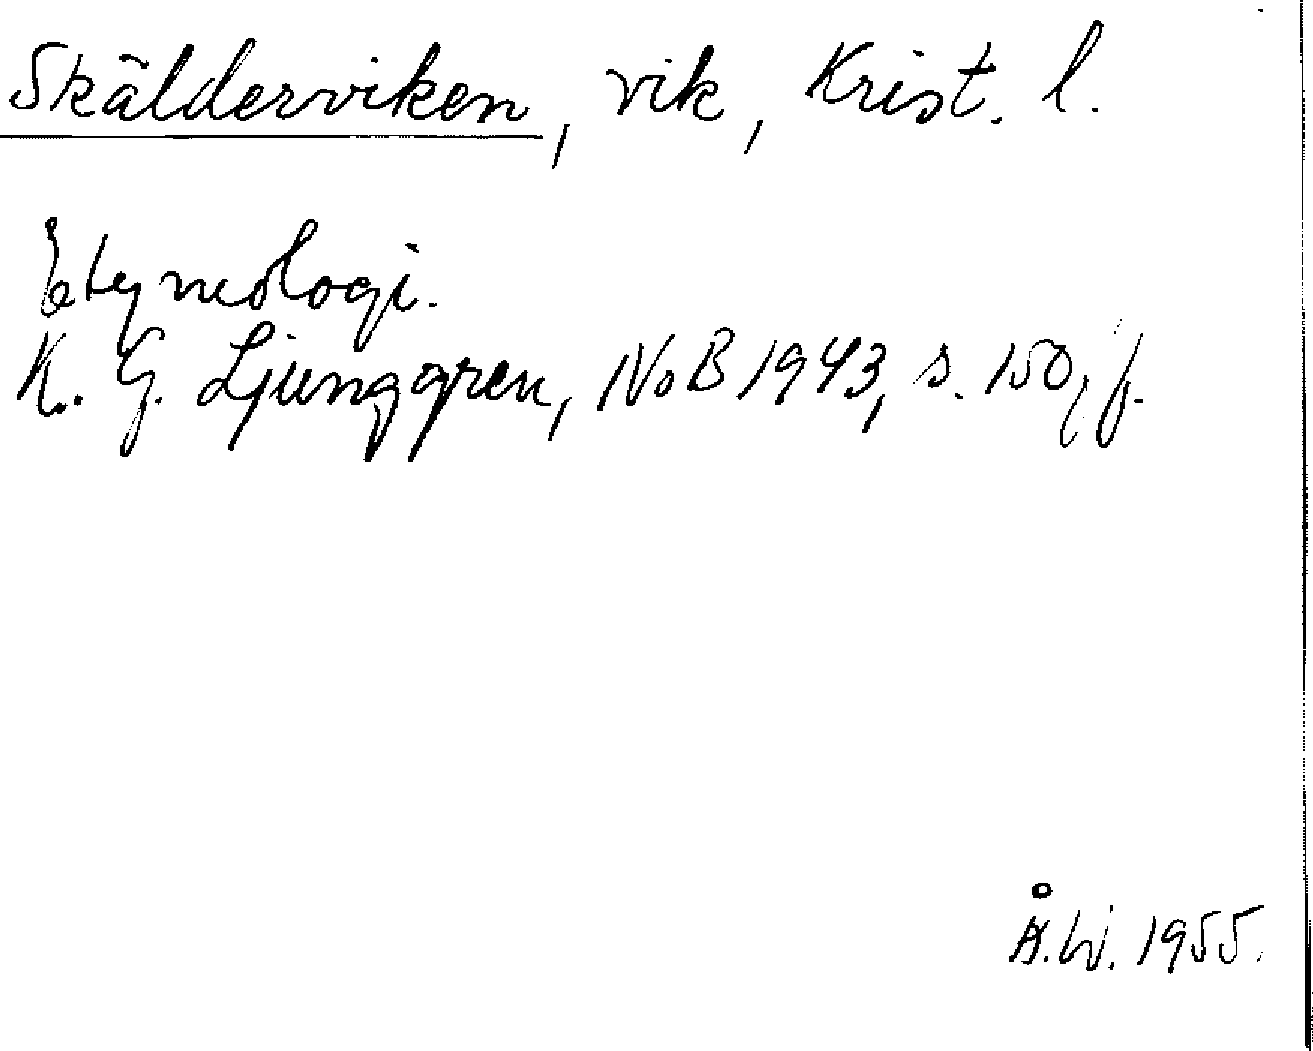 Skälderviken, vik, Krist. l.
Etymologi.
K. G. Ljunggren, NoB 1943, s. 150, f.
Å.W. 1955.